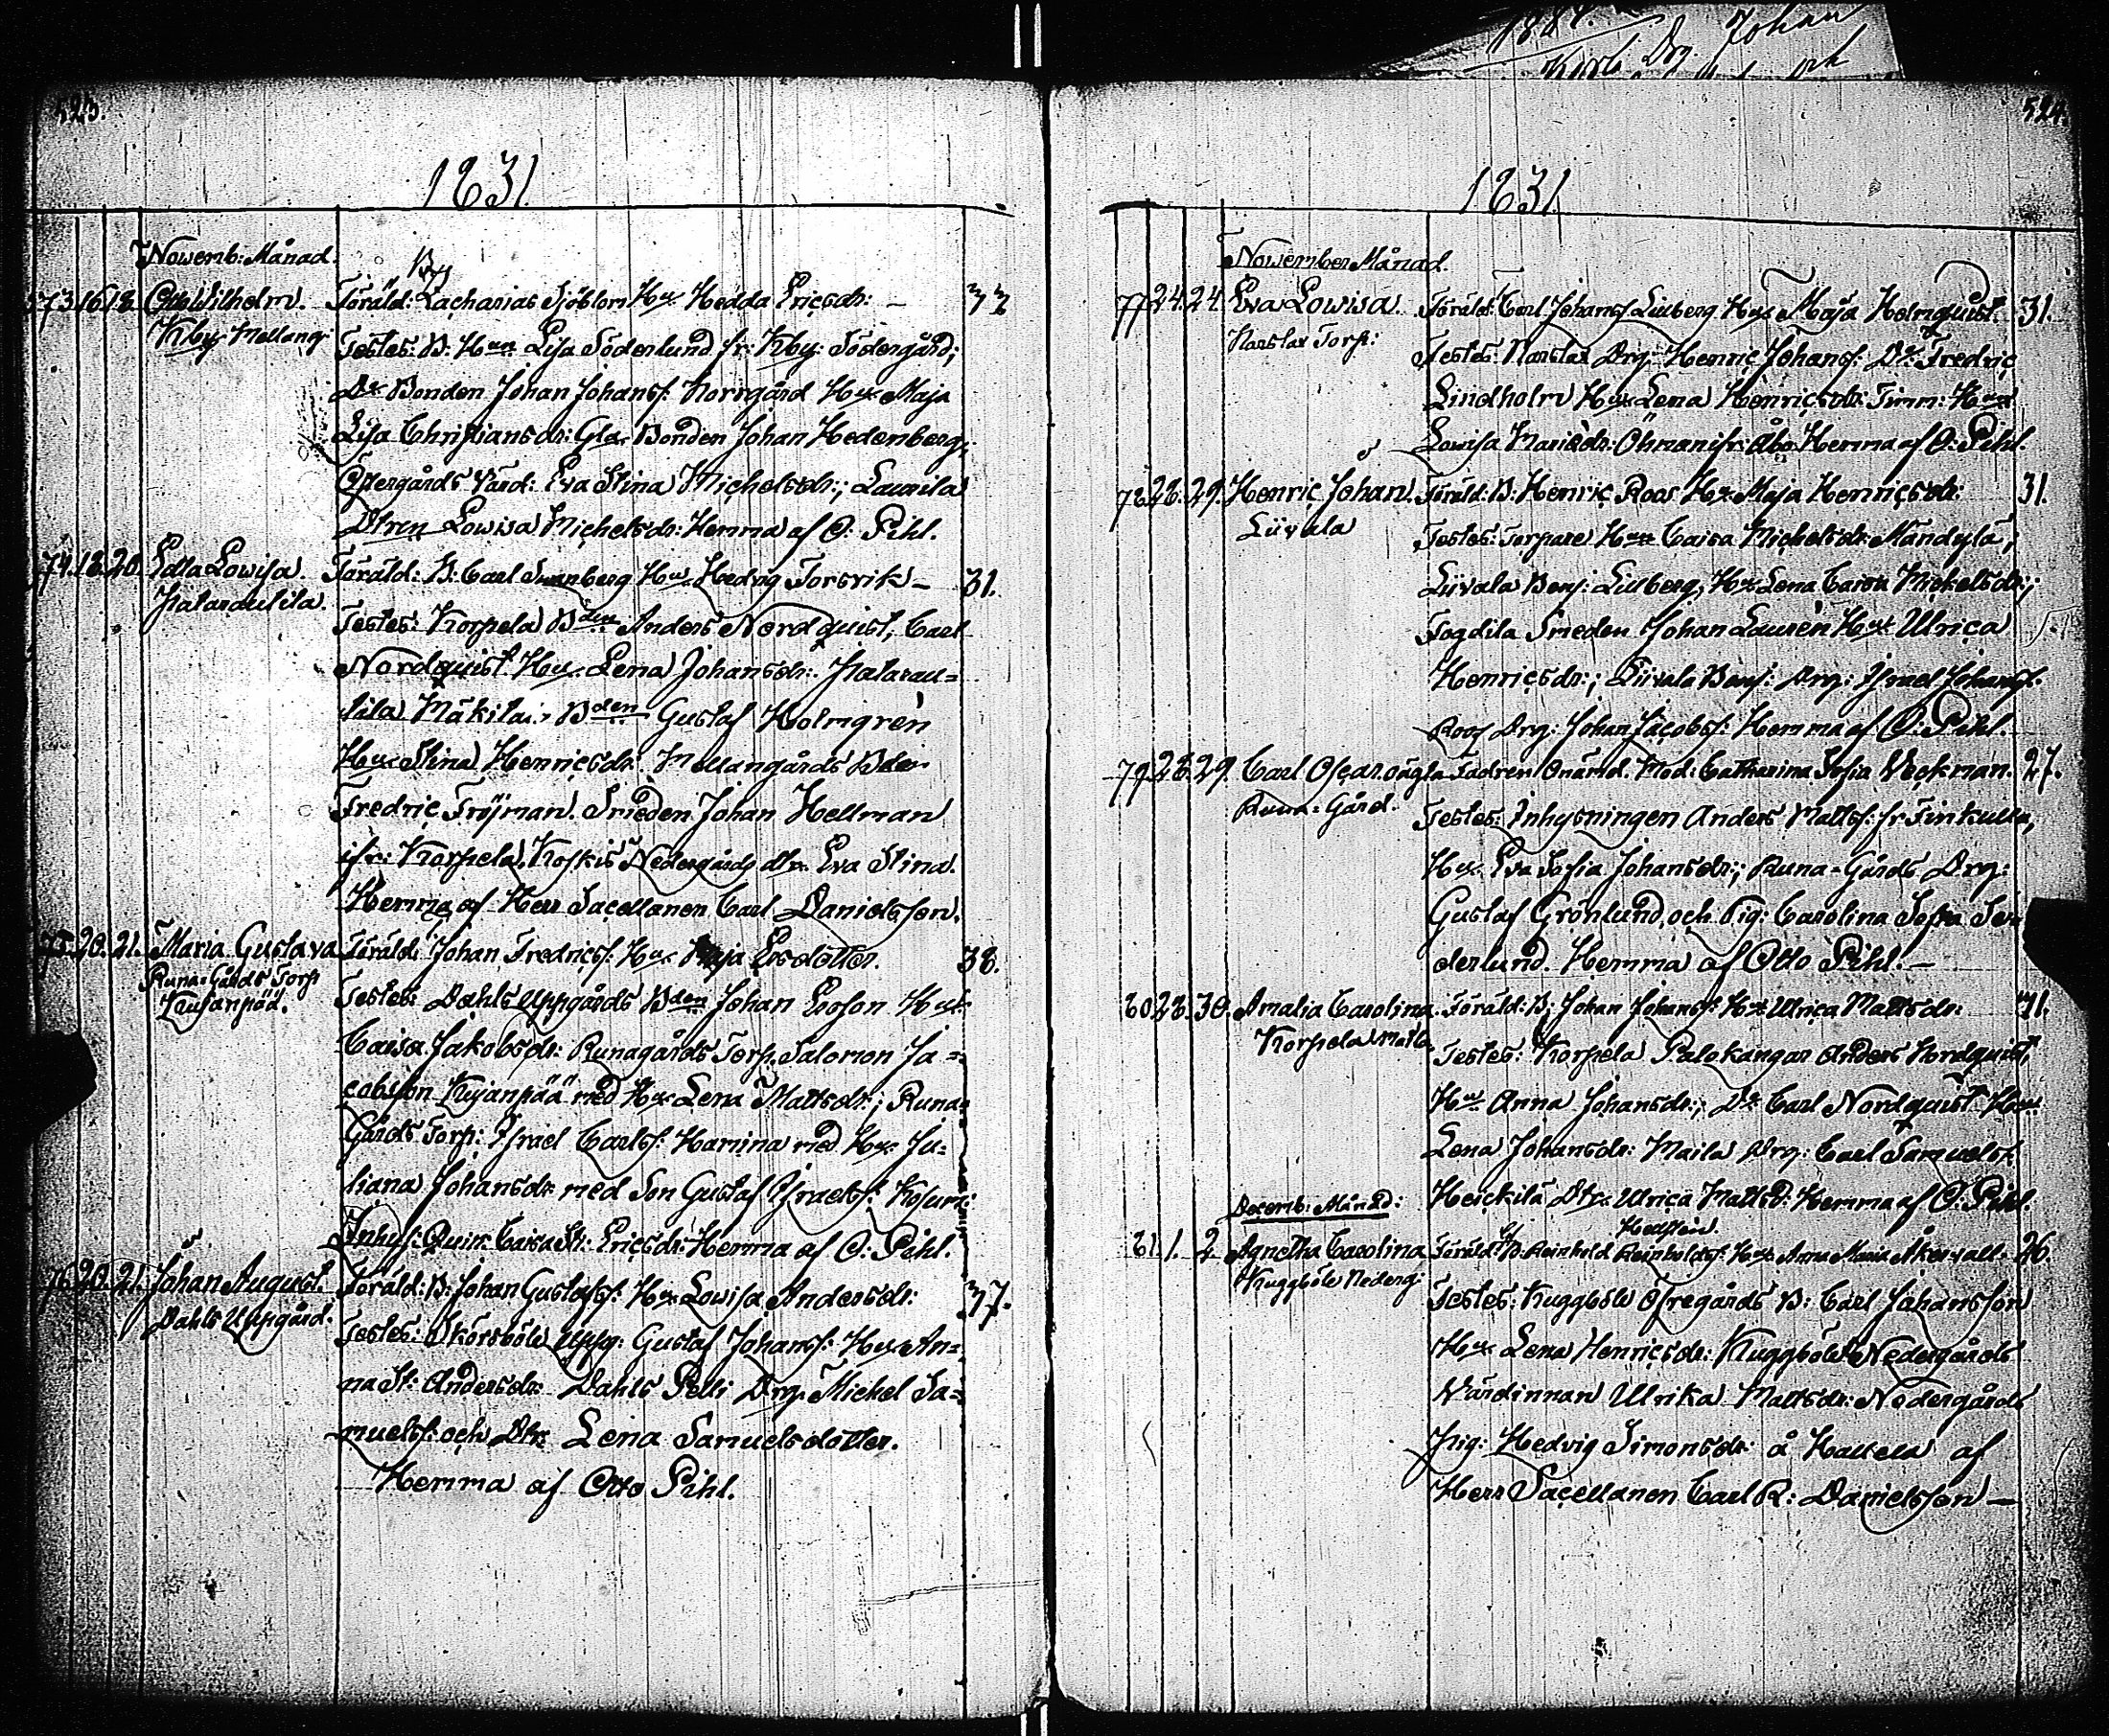 523.
1831.
Nowemb: Månad.
73. 16. 18. Otto Wilhelm. Föräld: B: Zacharias Sjöblom Hu Hedda Ericsdr: 32
Kby Mellang: Testes: B: Hun Lisa Söderlund fr: Kby: Södergård;
Do Bonden Johan Johansf: Norrgård Hu Maja
Lisa Christiansdr: Gla. Bonden Johan Hedenberg,
Östergårds Värd: Eva Stina Michelsdr:; Laurila
Dtren Lowisa Michelsdr: Hemma af O: Pihl.
74. 18. 20. Edla Lowisa. Föräld: B: Carl Swanberg Hu Hedvig Forsvik 31.
Testes: Korpela Bden Anders Nordquist, Carl
Nordquist Hu Lena Johansdr:
Mäkila Bden Gustaf Holmgrén
Hu Stina Henricsdr: Mellangårds Bden
Fredric Fröjman. Smeden Johan Hellman
ifr: Korpela, Koskis Nedergårds dtr Eva Stina.
Hemma af Herr Sacellanen Carl Danielsson.
75. 20. 21. Maria Gustava Föräld: Johan Fredricsf: Hu Maja Ersdotter. 38.
Runa-Gårds Torp Testes: Dahls Uppgårds Bden Johan Ersson Hu
Kujanpää. Caisa Jakobsdr: Runagårds Torp. Salomon Ja=
cobsson Kujanpää med Hu Lena Mattsdr:; Runa=
Gårds Torp: Israel Carlsf: Hamina med Hu Ju=
liana Johansdr med Son Gustaf Israelsf:
Inhys: Quin: Caisa St: Ericsdr: Hemma af O: Pihl.
76. 20. 21. Johan August. Föräld: B: Johan Gustafsf: Hu Lowisa Andersdr: 37.
Dahls Uppgård. Testes: Skörsböle Uppg: Gustaf Johansf: Hu An=
na St: Andersdr: Dahls Pelli Drg: Michel Sa=
muelsf: och Dtr: Lena Samuelsdotter.
Hemma af Otto Pihl.
524.
1831.
Nowember Månad.
77. 24. 24. Eva Lowisa. Föräld: Carl Johansf: Lilberg Hu Maja Holmquist. 31.
Torp: Testes: Drg: Henric Johansf: Do Fredric
Lindholm Hu Lena Henricsdr: Timm:
Lowisa Öhman ifr: Åbo. Hemma af O: Pihl.
78. 28. 29. Henric Johan. Föräld: B: Henric Roos Hu Maja Henricsdr: 31.
Liivala Testes: Torpare Hun Caisa Michelsdr: Mändylä;
Liivala Benj: Lilberg, Hu Lena Caisa Michelsdr:;
Fogdila Smeden Johan Laurén Hu Ulrica
Henricsdr:; Liivala Drg: Israel Johansf:
Roos Drg: Johan Jacobsf: Hemma af O: Pihl.
79. 28. 29. Carl Oscar. oägta Fadren Onämd. Mod: Catharina Sofia Weckman. 27.
Runa-Gård. Testes: Inhysningen Anders Mattsf: fr Finkulla,
Hu Eva Sofia Johansdr:; Runa-Gårds Drg:
Gustaf Grönlund, och Pig: Carolina Sofia Sö=
derlund. Hemma af Otto Pihl.
80. 28. 30. Amalia Carolina. Föräld: B: Johan Johansf: Hu Ulrica Mattsdr: 41.
Korpela Testes: Korpela Palokangas Anders Nordquist,
Hu Anna Johansdr:; Do Carl Nordquist Hu
Lena Johansdr: Maila Drg: Carl Samuelsf:
Heickilä Dtr. Ulrica Mattsd: Hemma af O: Pihl.
Decemb: Månad:
81. 1. 2. Agnetha Carolina Föräld: B: Reinhold Reinholdsf: Hellstén. Hu Anna Maria Åkervall. 26.
Kuggböle Nederg: Testes: Kuggböle Öfregårds B: Carl Johansson
Hu Lena Henricsdr: Kuggböle Nedergårds
Värdinnan Ulrika Mattsdr: Nedergårds
Pig: Hedvig Simonsdr: å Hallela af
Herr Sacellanen Carl R: Danielsson